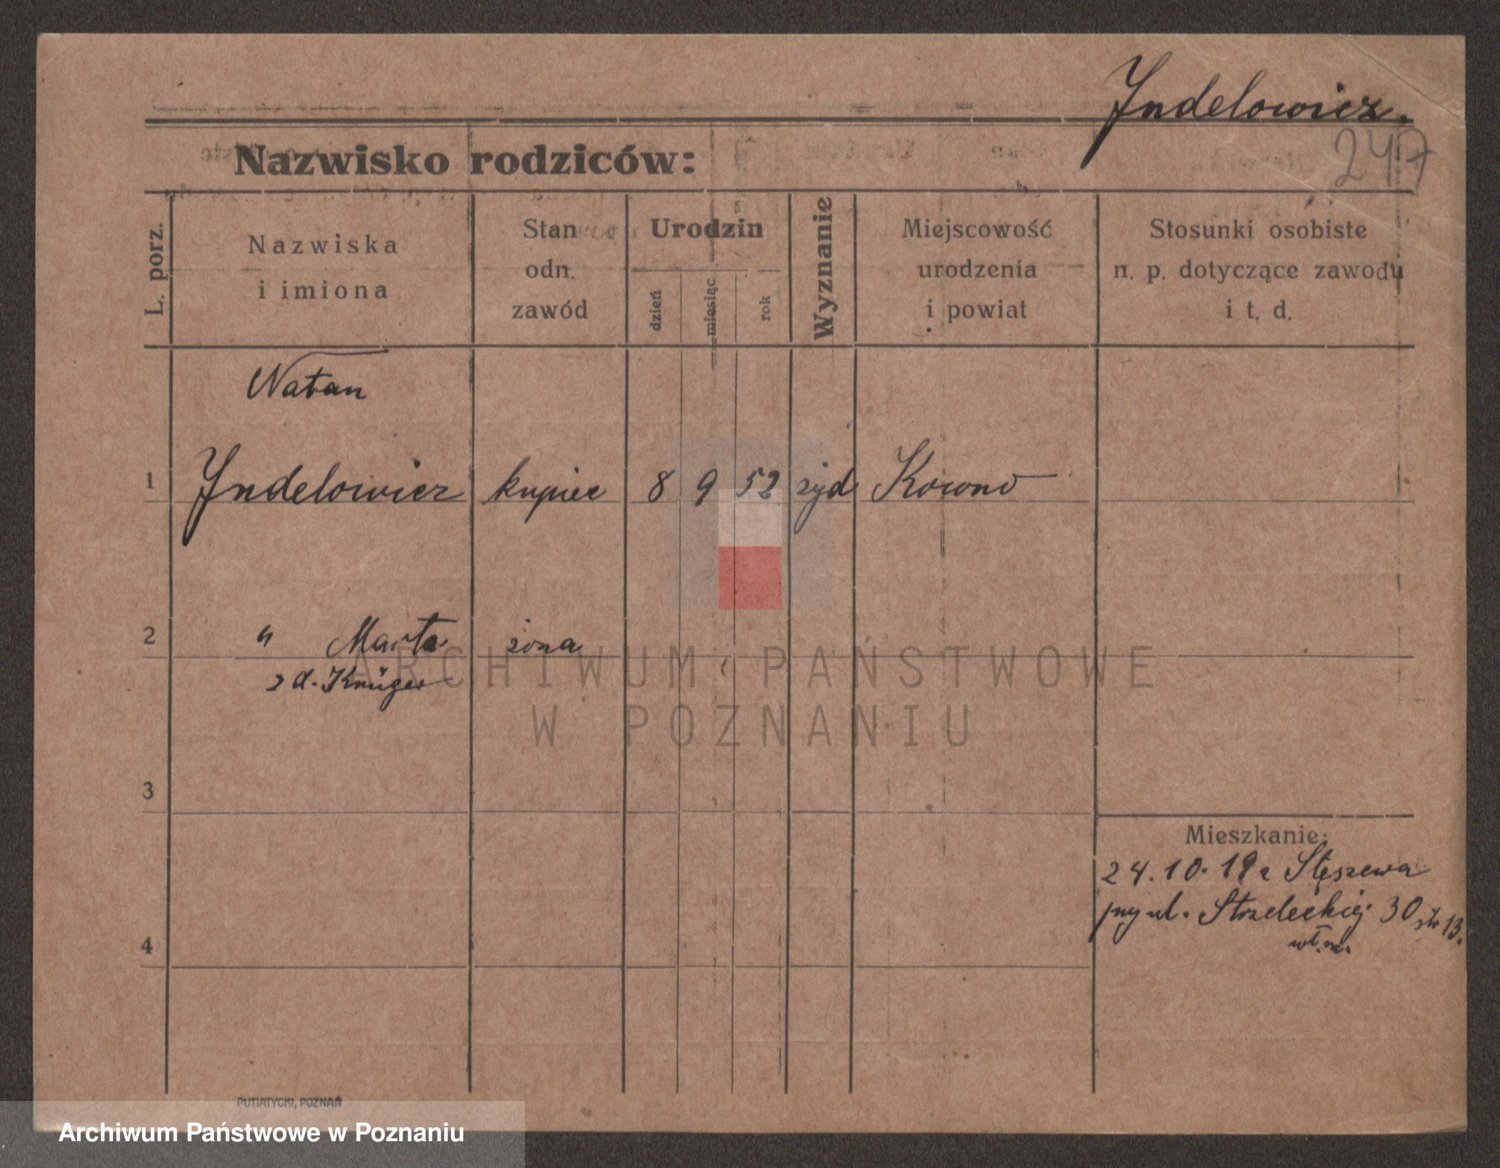 Jndelowicz.
247
Nazwisko rodziców:
L. porz.
Nazwiska
i imiona
Stan
odn.
zawód
Urodzin
dzień
miesiąc
rok
Wyznanie
Miejscowość
urodzenia
i powiat
Stosunki osobiste
n. p. dotyczące zawodu
i t. d.
Natan
1 Jndelowicz kupiec 8 9 52 żyd Kowno
2 " Marta żona
z d. Krüger
ARCHIWUM PAŃSTWOWE
W POZNANIU
3
Mieszkanie:
24.10.19 z Stęszewa
przy ul. Strzeleckiej 30 13.
wł.m.
4
PUTIATYCKI, POZNAŃ
Archiwum Państwowe w Poznaniu